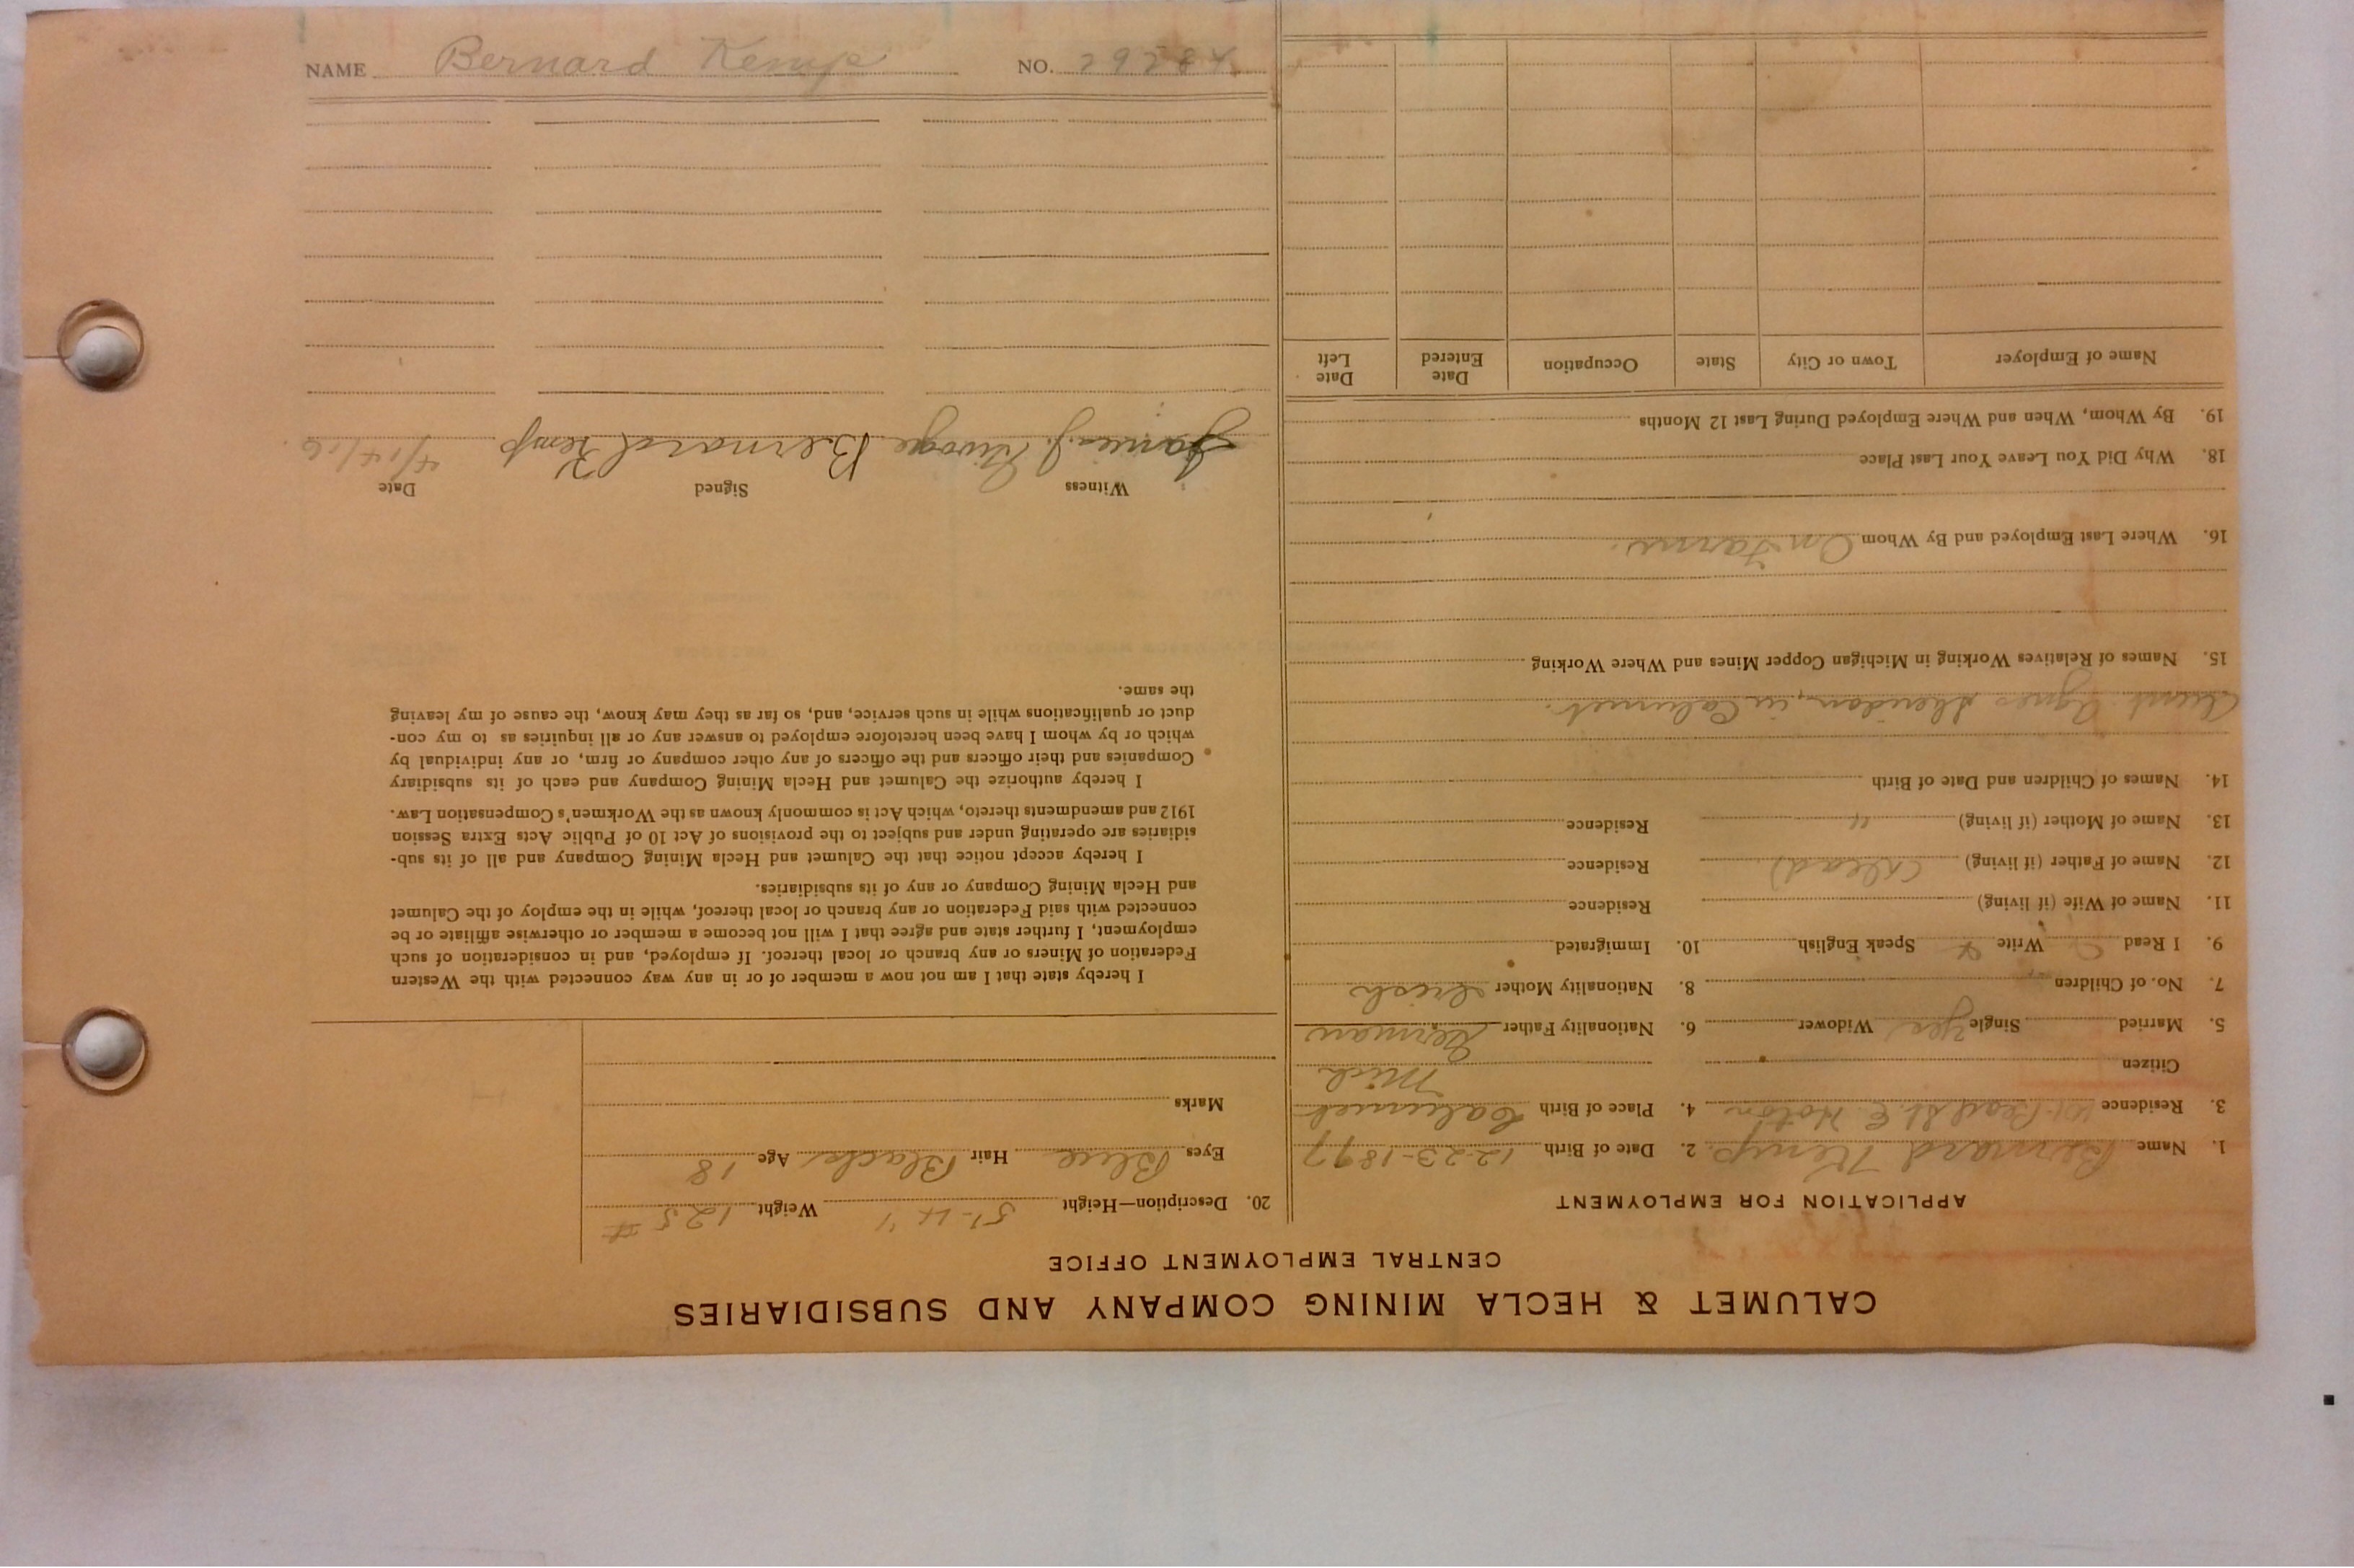 CALUMET & HECLA MINING COMPANY AND SUBSIDIARIES
CENTRAL EMPLOYMENT OFFICE
APPLICATION FOR EMPLOYMENT
1. Name Bernard Kemp. 2. Date of Birth 12-23-1897
3. Residence St. E Hoton 4. Place of Birth Calumet
Mich
Citizen
5. Married Single yes Widower 6. Nationality Father German
7. No. of Children 8. Nationality Mother Irish
9. I Read Write Speak English 10. Immigrated
11. Name of Wife (if living) Residence
12. Name of Father (if living) (Dead) Residence
13. Name of Mother (if living) " Residence
14. Names of Children and Date of Birth
Aunt Agnes Sheridan, in Calumet.
15. Names of Relatives Working in Michigan Copper Mines and Where Working
16. Where Last Employed and By Whom On Farm.
18. Why Did You Leave Your Last Place
19. By Whom, When and Where Employed During Last 12 Months
Name of Employer Town or City State Occupation Date Entered Date Left
20. Description—Height 5'-4" Weight 125 #
Eyes Blue Hair Black Age 18
Marks
I hereby state that I am not now a member of or in any way connected with the Western
Federation of Miners or any branch or local thereof. If employed, and in consideration of such
employment, I further state and agree that I will not become a member or otherwise affiliate or be
connected with said Federation or any branch or local thereof, while in the employ of the Calumet
and Hecla Mining Company or any of its subsidiaries.
I hereby accept notice that the Calumet and Hecla Mining Company and all of its sub-
sidiaries are operating under and subject to the provisions of Act 10 of Public Acts Extra Session
1912 and amendments thereto, which Act is commonly known as the Workmen's Compensation Law.
I hereby authorize the Calumet and Hecla Mining Company and each of its subsidiary
Companies and their officers and the officers of any other company or firm, or any individual by
which or by whom I have been heretofore employed to answer any or all inquiries as to my con-
duct or qualifications while in such service, and, so far as they may know, the cause of my leaving
the same.
Witness Signed Date
James J. Bernard Kemp 4/14/16
NAME Bernard Kemp NO. 29284